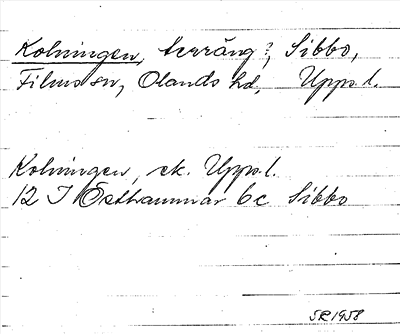 Kolningen, terräng?, Sibbo,
Films sn, Olands hd, Upps. l.
Kolningen, ek. Upps. l.
12 I Östhammar 6c Sibbo
SR 1958